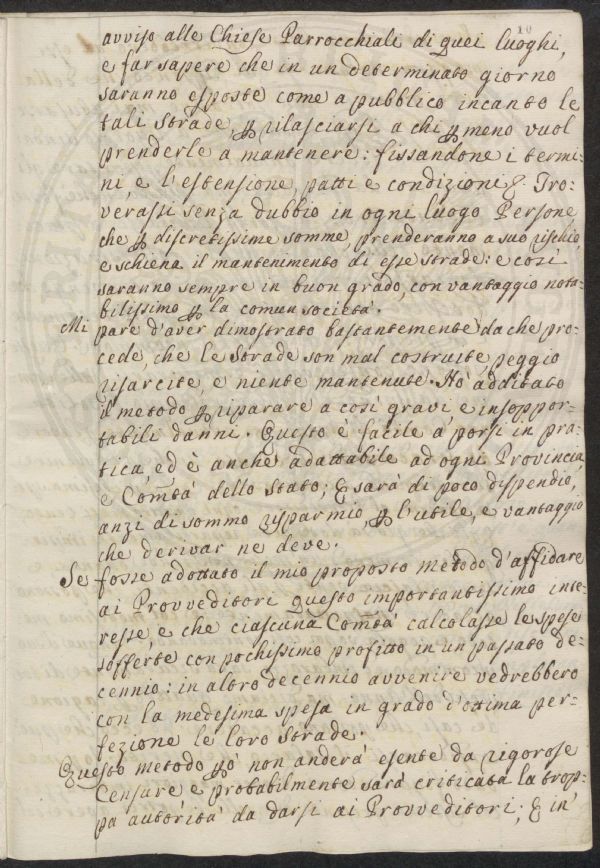 10
avviso alle Chiese Parrocchiali di quei luoghi,
e far sapere che in un determinato giorno
saranno esposte come a pubblico incanto le
tali strade, ꝑ rilasciarsi a chi ꝑ meno vuol
prenderle a mantenere: fissandone i termi-
ni, e l'estensione, patti e condizioni &. Tro-
verassi senza dubbio in ogni luogo Persone,
che ꝑ discretissime somme, prenderanno a suo rischio,
e schiena il mantenimento di esse strade: e così
saranno sempre in buon grado, con vantaggio nota-
bilissimo ꝑ la comun società.
Mi pare d'aver dimostrato bastantemente da che pro-
cede, che le strade son mal costruite, peggio
risarcite, e niente mantenute. Hò additato
il metodo ꝑ riparare a così gravi e insoppor-
tabili danni. Questo è facile a porsi in pra-
tica, ed è anche adattabile ad ogni Provincia,
e Com̃tà dello Stato; & sarà di poco dispendio,
anzi di sommo risparmio, ꝑ l'utile, e vantaggio
che derivar ne deve.
Se fosse adottato il mio proposto metodo d'affidare
ai Provveditori questo importantissimo inte-
resse, e che ciascuna Com̃tà calcolasse le spese
sofferte con pochissimo profitto in un passato de-
cennio: in altro decennio avvenire vedrebbero
con la medesima spesa in grado d'ottima per-
fezione le loro strade.
Questo metodo ꝑò non anderà esente da rigorose
Censure e probabilmente sarà criticata la trop-
pa autorità da darsi ai Provveditori; & in